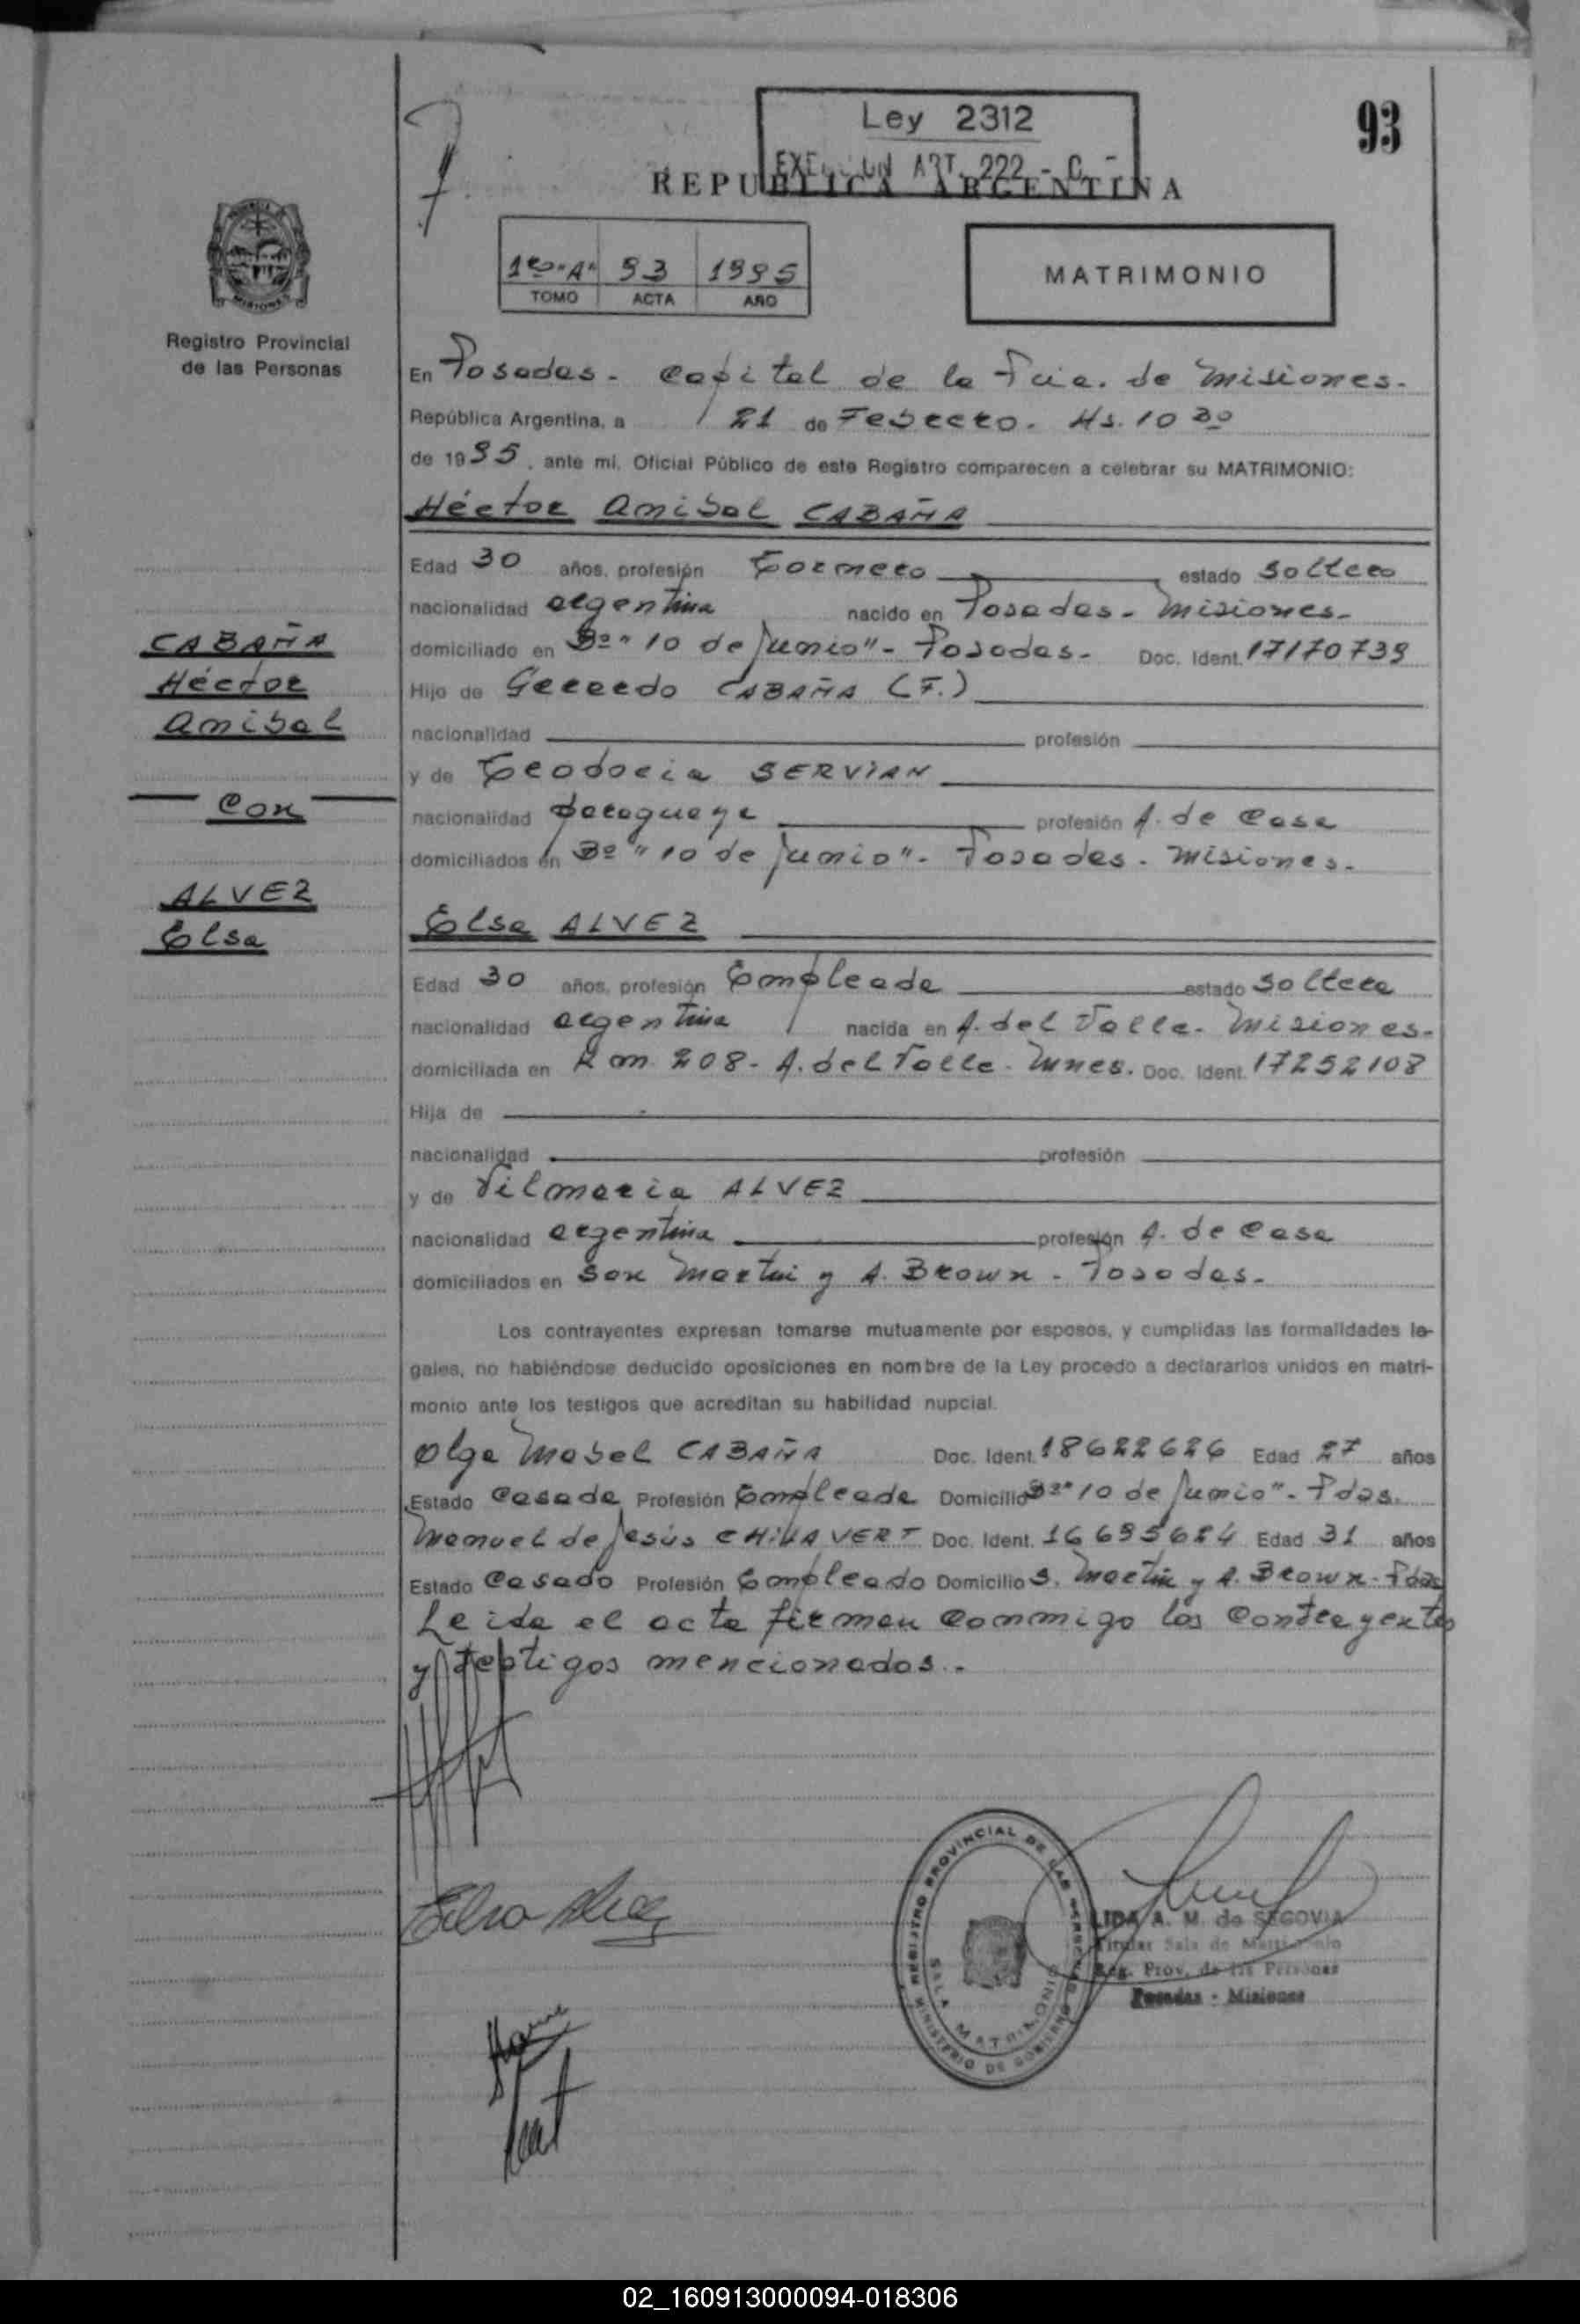 Ley 2312
93
EXENCION ART. 222 - C.
REPUBLICA ARGENTINA
1ro "A" 93 1995
TOMO ACTA AÑO
MATRIMONIO
Registro Provincial
de las Personas
En Posadas - Capital de la Pcia. de Misiones.
República Argentina, a 21 de Febrero. Hs. 10 30
de 1995, ante mí, Oficial Público de este Registro comparecen a celebrar su MATRIMONIO:
Héctor Anibal CABAÑA
Edad 30 años, profesión Tornero estado Soltero
nacionalidad argentina nacido en Posadas - Misiones.
domiciliado en Bº "10 de Junio" - Posadas - Doc. Ident. 17170739
Hijo de Gerardo CABAÑA (F.)
nacionalidad profesión
y de Teodocia SERVIAN
nacionalidad paraguaya profesión A. de Casa
domiciliados en Bº "10 de Junio" - Posadas - Misiones.
CABAÑA
Héctor
Anibal
Con
ALVEZ
Elsa
Elsa ALVEZ
Edad 30 años, profesión Empleada estado Soltera
nacionalidad argentina nacida en A. del Valle - Misiones.
domiciliada en Km. 208 - A. del Valle - Mnes. Doc. Ident. 17252108
Hija de
nacionalidad profesión
y de Vilmaria ALVEZ
nacionalidad argentina profesión A. de Casa
domiciliados en San Martin y A. Brown - Posadas.
Los contrayentes expresan tomarse mutuamente por esposos, y cumplidas las formalidades le-
gales, no habiéndose deducido oposiciones en nombre de la Ley procedo a declararlos unidos en matri-
monio ante los testigos que acreditan su habilidad nupcial.
Olga Mabel CABAÑA Doc. Ident. 18622626 Edad 27 años
Estado Casada Profesión Empleada Domicilio Bº "10 de Junio" - Pdas.
Manuel de Jesús CHILAVERT Doc. Ident. 16695624 Edad 31 años
Estado Casado Profesión Empleado Domicilio S. Martin y A. Brown - Pdas
Leida el acta firman conmigo los contrayentes
y testigos mencionados.-
Elsa Alvez
REGISTRO PROVINCIAL DE LAS PERSONAS
SALA MATRIMONIO
MINISTERIO DE GOBIERNO
LIDA A. M. de SEGOVIA
Titular Sala de Matrimonio
Reg. Prov. de las Personas
Posadas - Misiones
02_160913000094-018306